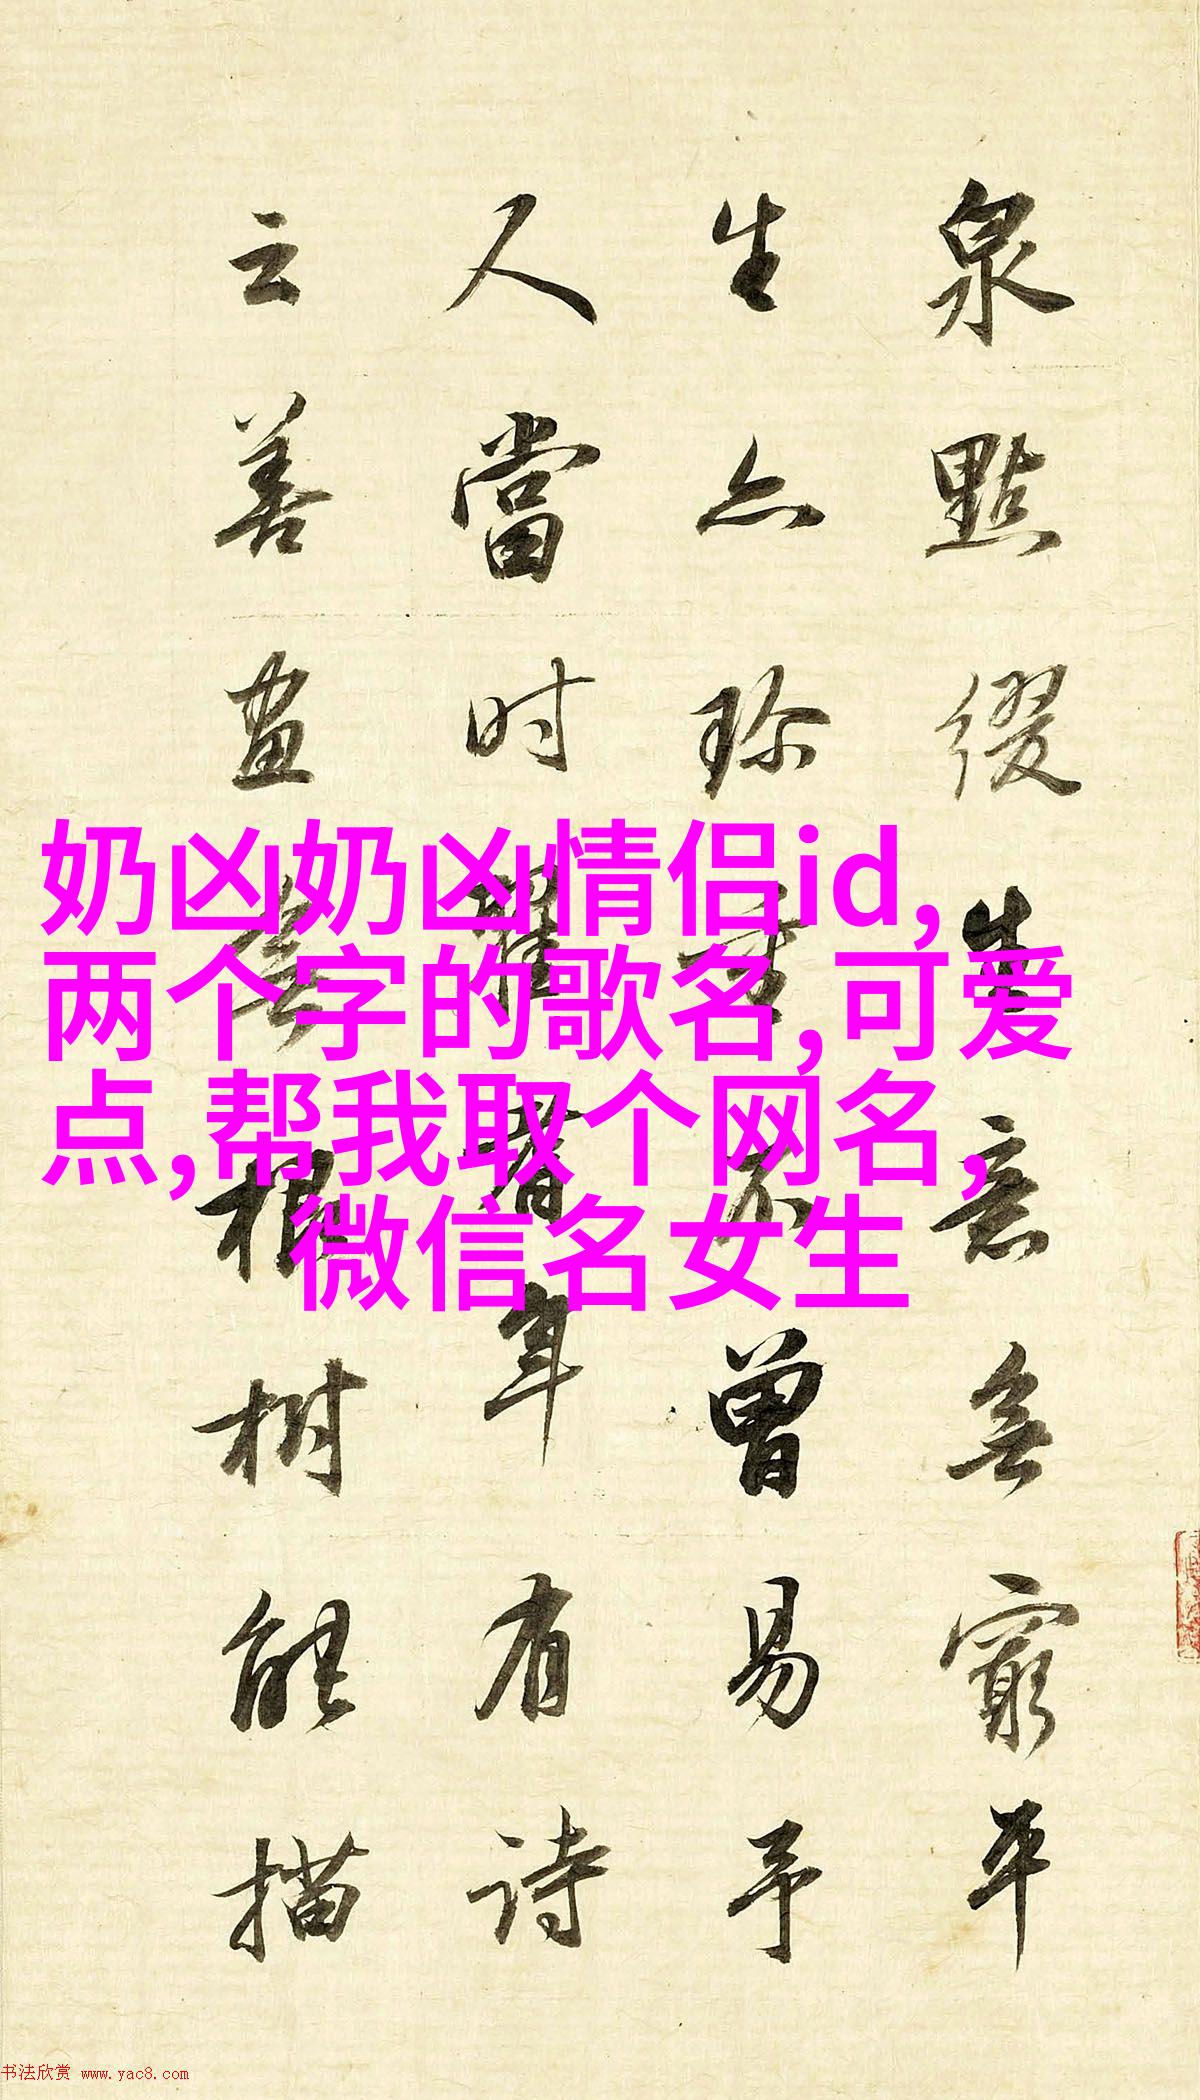 泉點綴生意無窮平
生亦珍重不曾易予
人當时年有诗
云善畫根树能描
奶凶奶凶情侣id,
两个字的歌名,可爱
点,帮我取个网名,
微信名女生
书法欣赏 www.yac8.com